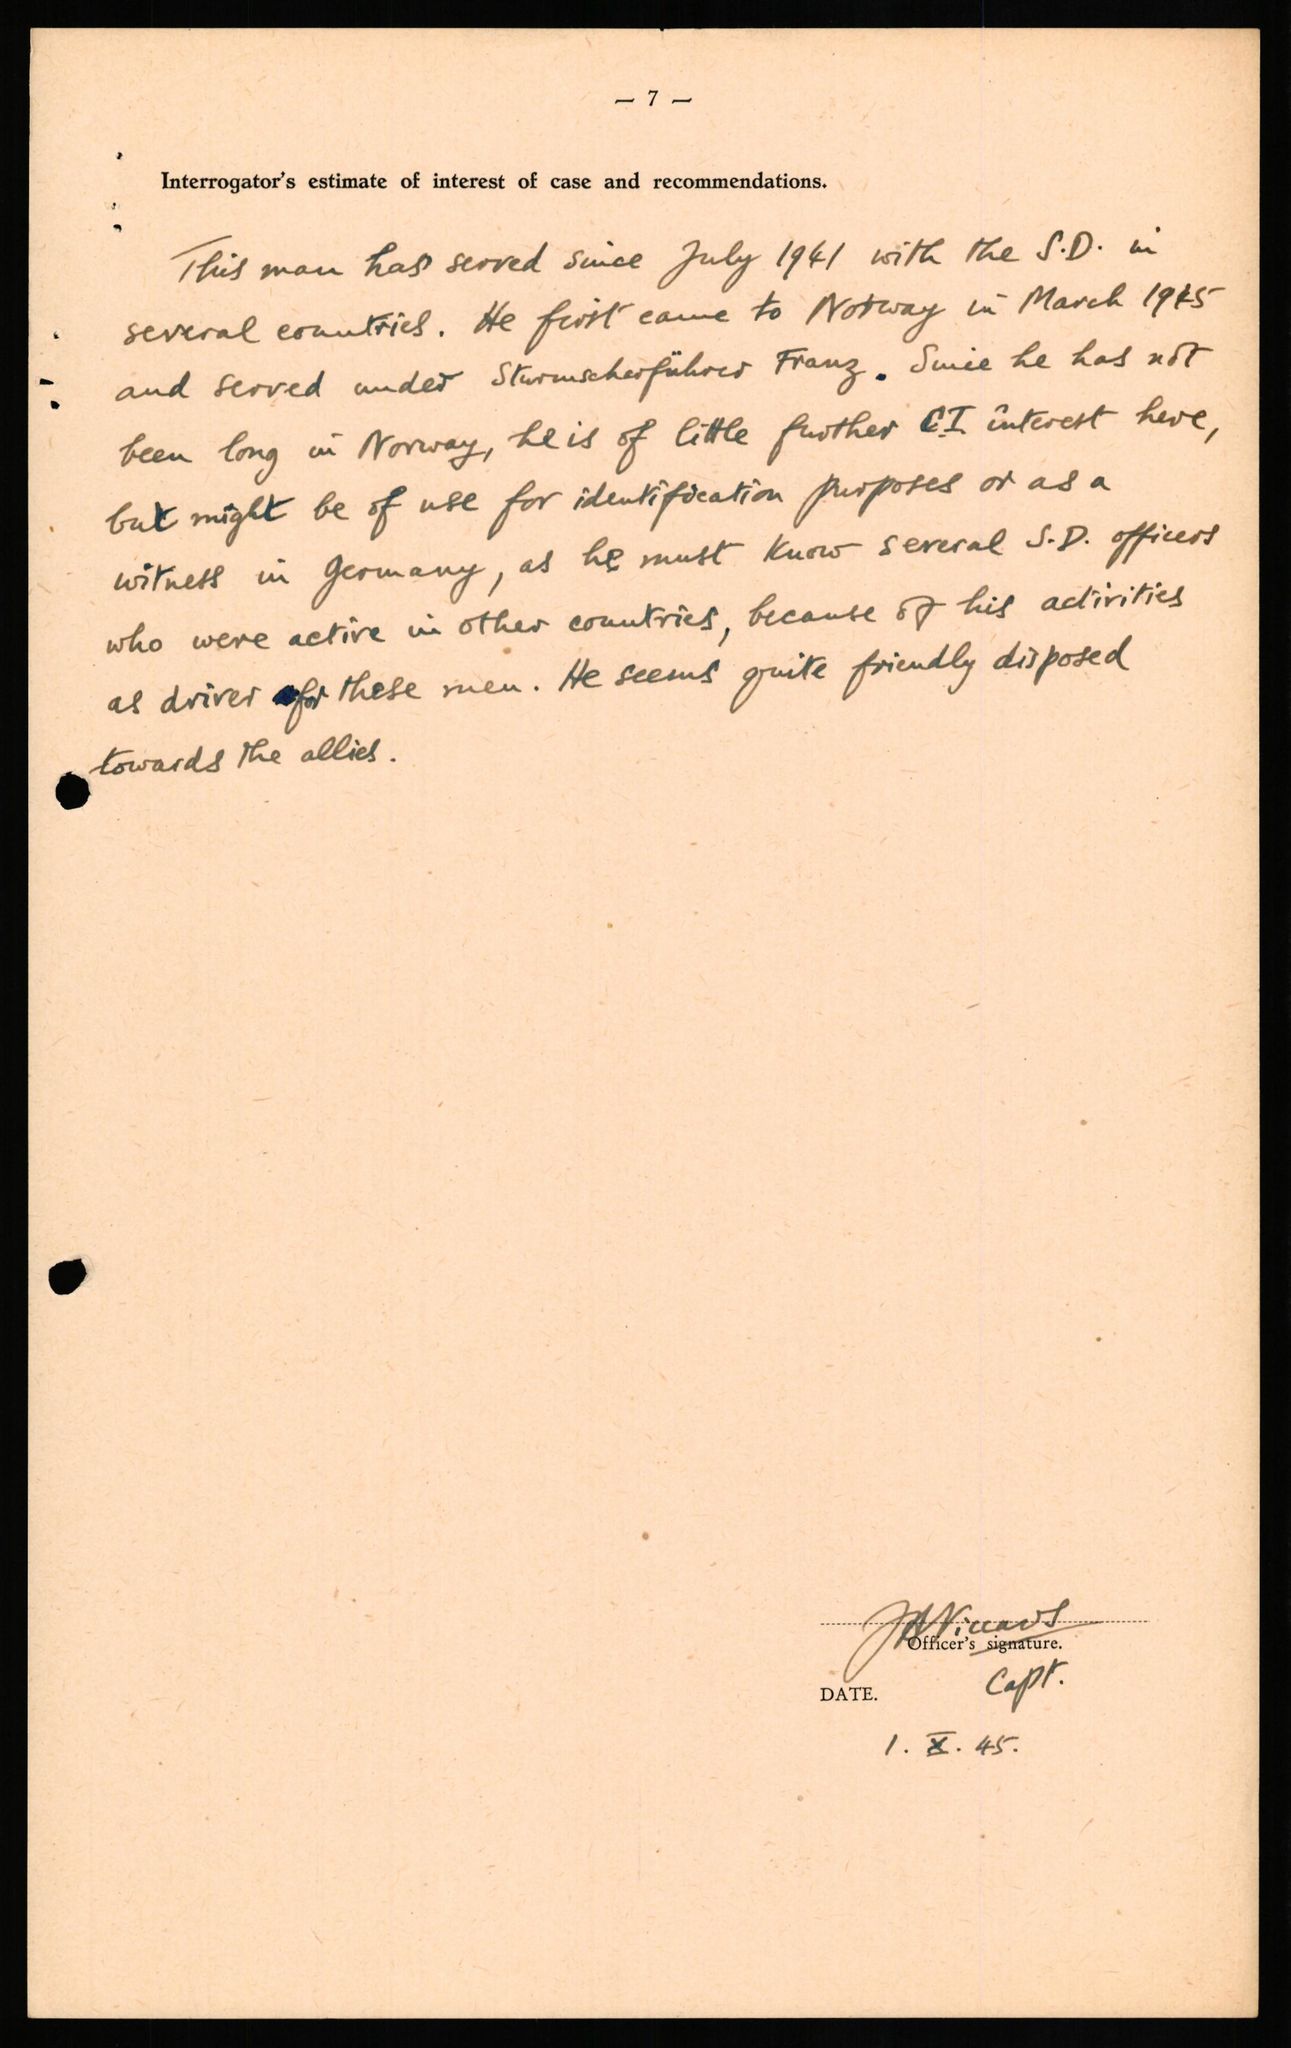 — 7 —
Interrogator's estimate of interest of case and recommendations.
This man has served since July 1941 with the S.D. in
several countries. He first came to Norway in March 1945
and served under Sturmscharführer Franz. Since he has not
been long in Norway, he is of little further CI interest here,
but might be of use for identification purposes or as a
witness in Germany, as he must know several S.D. officers
who were active in other countries, because of his activities
as driver for these men. He seems quite friendly disposed
towards the allies.
Officer's signature.
Capt.
DATE.
1. X. 45.